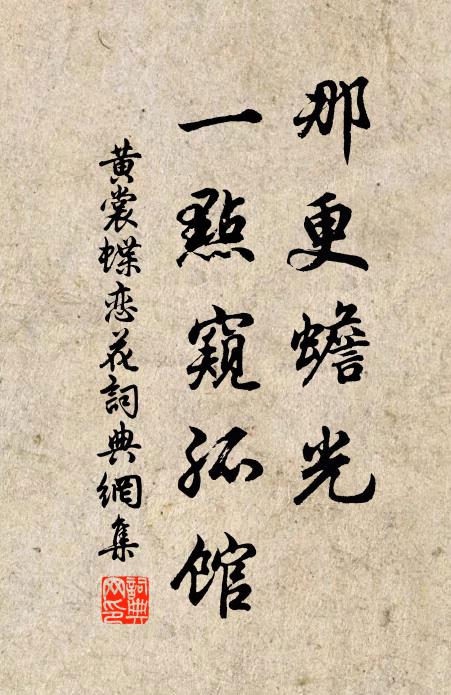 那更蟾光
一點窺孤館
黃裳蝶恋花詞典網集
詞典网印